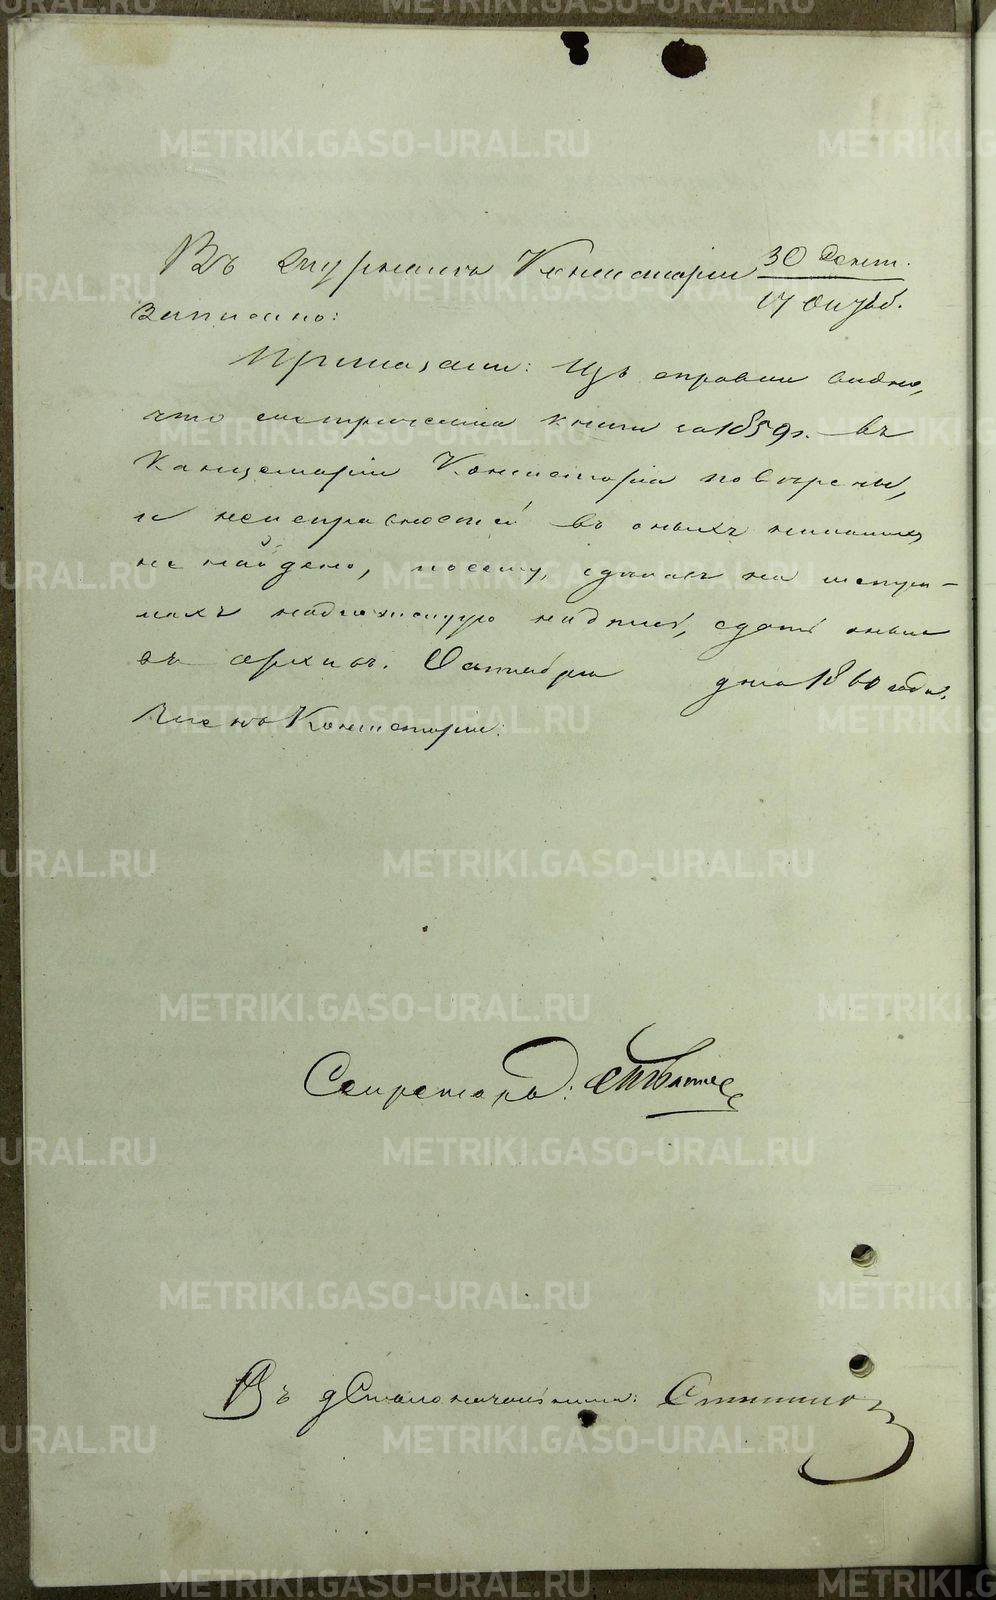 Въ журналѣ Консисторіи 30 Сент.
17 Октяб.
Записано:
Приказали: Изъ справки видно,
что метрическія книги за 1859 г. въ
Канцеляріи Консисторіи повѣрены,
и неисправностей въ оныхъ никакихъ
не найдено, посему, сдѣлавъ на
надлежащую надпись, сдать оныя
въ архивъ. Октября дня 1860 года.
Консисторіи:
Секретарь:
Въ д. Столоначальника:
METRIKI.GASO-URAL.RU